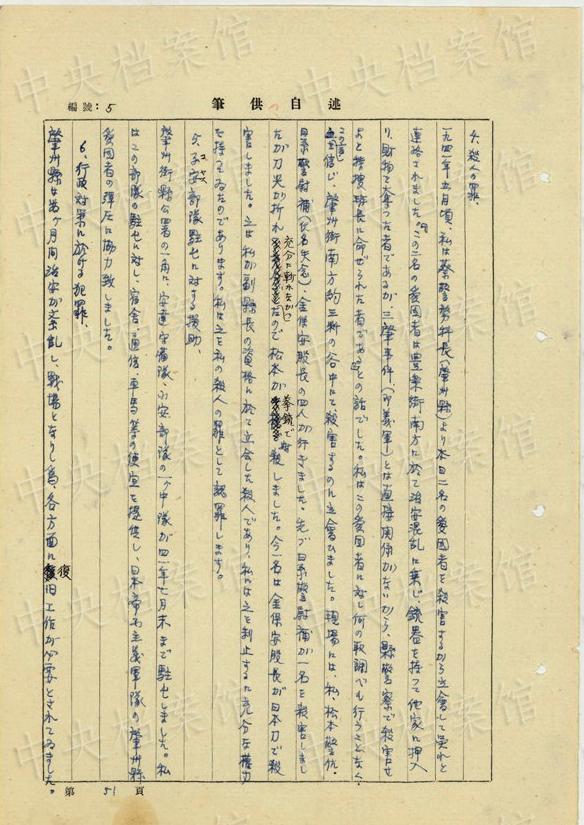 編號：5
述自供筆
4、殺人の罪、
一九四一年五月頃、私は蔡警務科長(肇州縣)より本日二名の愛国者を殺害するから立會して呉れと
連絡されました。この二名の愛国者は豊楽街南方に於て治安混乱に乗じ、銃器を持って他家に押入
り、財物を奪った者であるが三肇事件、(即義軍)とは直接関係がないから、縣警察で殺害せ
よと捜捜班長に命ぜられた者であるとの話でした。私はこの愛国者に対し何の取調べも行うことなく、
この言を信じ、肇州街南方約三粁の谷中にて殺害するのに立會ひました。現場には、私、松本警佐、
日系警尉補(氏名失念)、金保安股長の四人が行きました。先づ日系警尉補が一名を殺害しまし
たが刀光が折れ充分に斬れなかったので松本が拳銃で射殺しました。今一名は金保安股長が日本刀で殺
害しました。之は私が副縣長の資格に於て立会した殺人であり、私には之を制止するに充分な権力
を持てゐたのであります。私は之を私の殺人の罪として認罪します。
5、部隊駐屯に対する援助、
肇州街縣公署の一角に、安達守備隊、部隊の一ケ中隊が四一年七月末まで駐屯しました。私
はこの部隊の駐屯に対し、宿舎、通信、車馬等の便宜を提供し、日本帝国主義軍隊の肇州縣
愛国者の弾圧に協力致しました。
6、行政対策に於ける犯罪、
肇州縣は約ケ月間治安が紊乱し、戦場となりし為、各方面に復旧工作が必要とされてゐました。
第 51 頁
中央档案馆